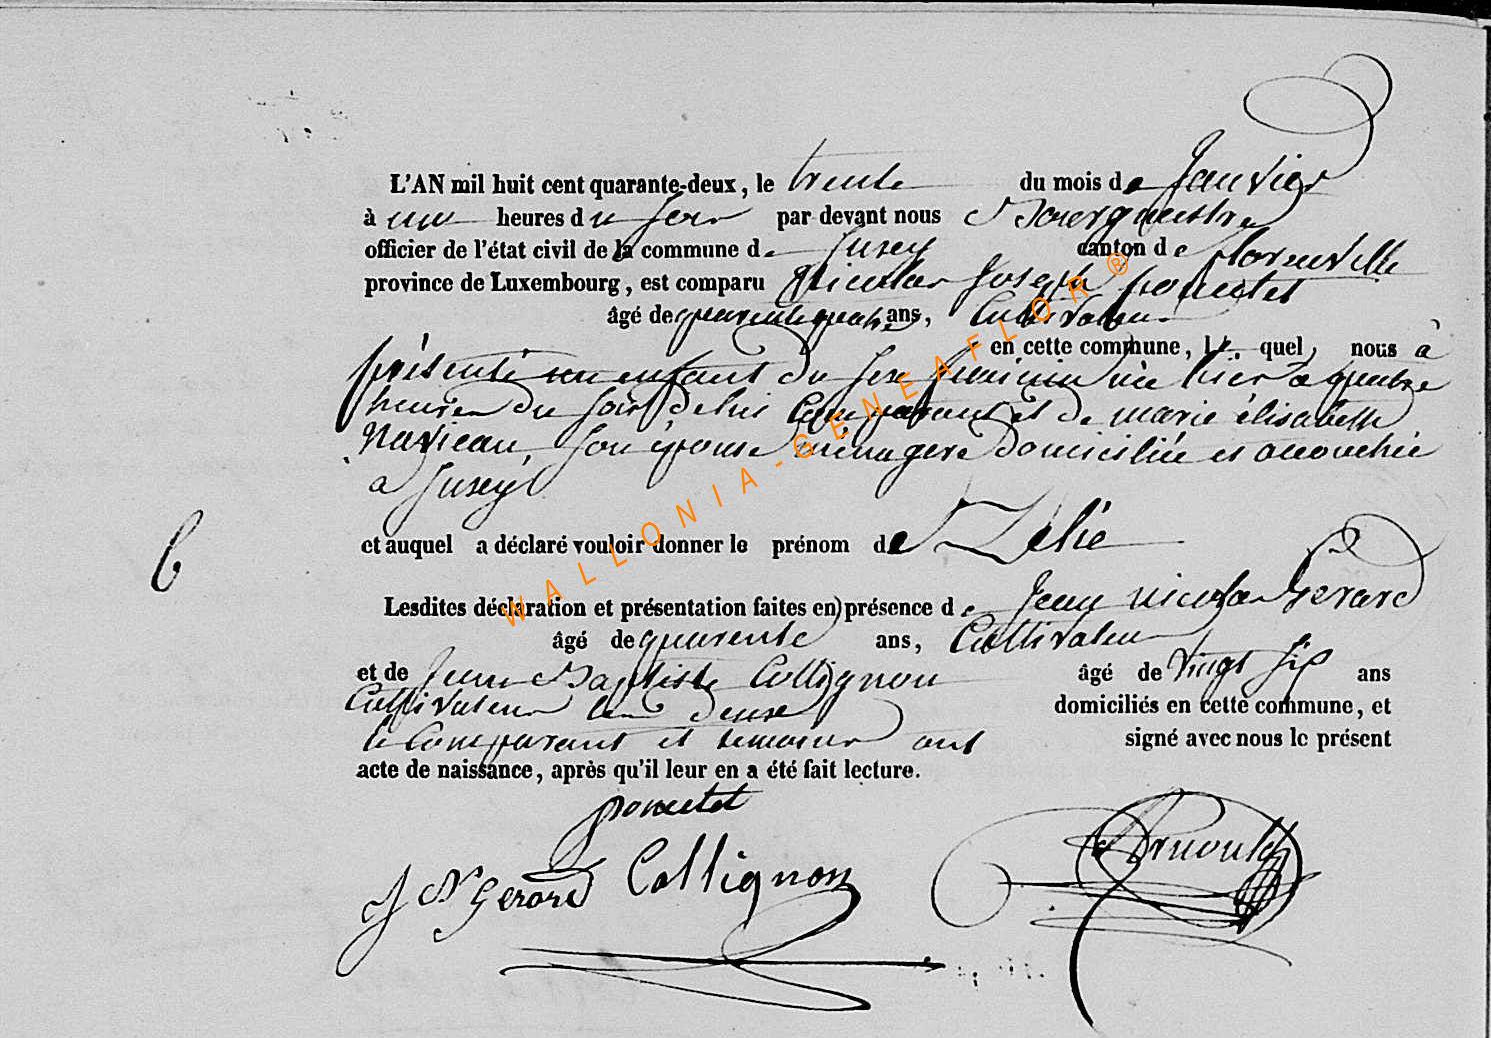 L'AN mil huit cent quarante-deux, le trente du mois de Janvier
à une heures du soir par devant nous Bourguestre
officier de l'état civil de la commune de Jusey canton de florenville
province de Luxembourg, est comparu Nicolas Joseph poncelet
âgé de quarente quatre ans, Cultivateur
en cette commune, le quel, nous à
présenté un enfant du sexe féminin née hier a quatre
heures du soir de lui Comparant et de marie élisabeth
son épouse ménagere domiciliée et accouchée
a Jusey
et auquel a déclaré vouloir donner le prénom de Zélie
6
Lesdites déclaration et présentation faites en présence de Jean nicolas Gérard
âgé de quarente ans, Cultivateur
et de Jean Baptiste Collignon âgé de vingt six ans
Cultivateur les deux domiciliés en cette commune, et
le Comparant et temoins ont signé avec nous le présent
acte de naissance, après qu'il leur en a été fait lecture.
poncelet
J N Gerard Collignon Arnould
WALLONIA-GENEAFLOR ®